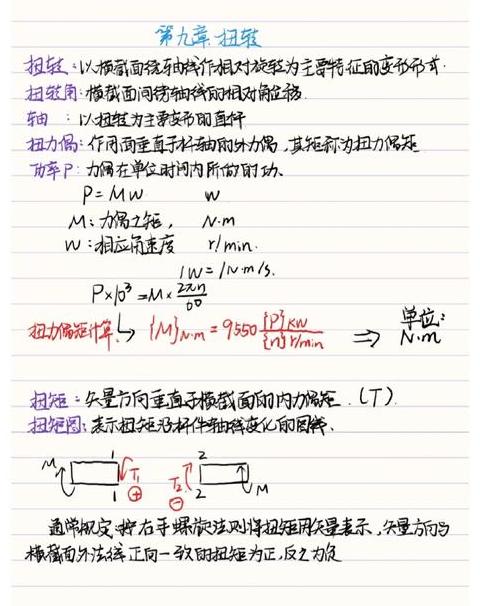 第九章 扭转
扭转：以横截面绕轴线作相对旋转为主要特征的变形形式.
扭转角：横截面间绕轴线的相对角位移.
轴：以扭转为主要变形的直杆
扭力偶：作用面垂直于杆轴的外力偶，其矩称为扭力偶矩
功率P：力偶在单位时间内所做的功、
P=MW W
M：力偶之矩， N·m
W：相应角速度 r/min.
1W=1N·m/s.
P×10³=M×2πn/60
扭力偶矩计算 ↳ {M}N·m = 9550 {P}kW/{n}r/min ⇒ 单位：N·m
扭矩：矢量方向垂直于横截面的内力偶矩.（T）.
扭矩图：表示扭矩沿杆件轴线变化的图线、
M 1 1 T₁ ⊕ T₂ ⊖ 2 2 M
通常规定：按右手螺旋法则将扭矩用矢量表示，矢量方向与
横截面外法线正向一致的扭矩为正，反之为负